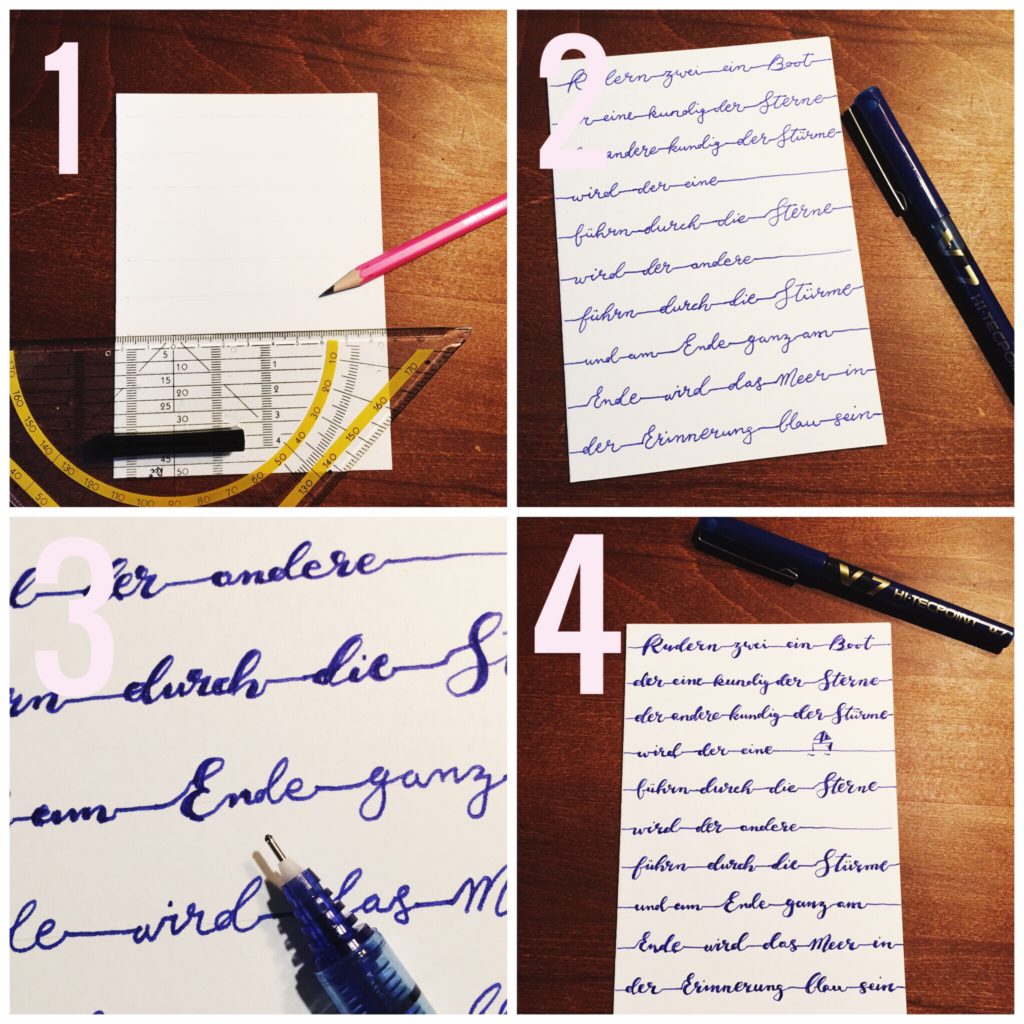 1
5
10
15
25
30
45
50
1
2
3
4
10
20
30
40
50
60
70
80
90
100
110
120
130
140
150
160
2
zwei ein Boot
eine kundig der Sterne
andere kundig der Stürme
wird der eine
führn durch die Sterne
wird der andere
führn durch die Stürme
und am Ende ganz am
Ende wird das Meer in
der Erinnerung blau sein
V7
HI-TECPOINT
3
der andere
durch die
am Ende ganz
wird das
4
V7 HI-TECPOINT 0.7
Rudern zwei ein Boot
der eine kundig der Sterne
der andere kundig der Stürme
wird der eine
führn durch die Sterne
wird der andere
führn durch die Stürme
und am Ende ganz am
Ende wird das Meer in
der Erinnerung blau sein